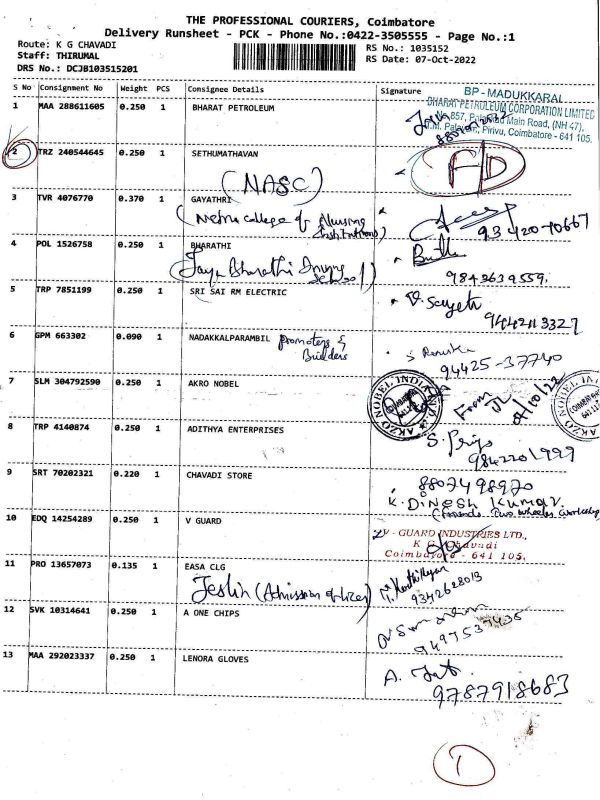 THE PROFESSIONAL COURIERS, Coimbatore
Delivery Runsheet - PCK - Phone No.:0422-3505555 - Page No.:1
Route: K G CHAVADI
Staff: THIRUMAL
DRS No.: DCJB103515201
RS No.: 1035152
RS Date: 07-Oct-2022
S No Consignment No Weight PCS Consignee Details Signature
BP - MADUKKARAI
BHARAT PETROLEUM CORPORATION LIMITED
No.857, Palakkad Main Road, (NH 47),
Pirivu, Coimbatore - 641 105.
1 MAA 288611605 0.250 1 BHARAT PETROLEUM
2 TRZ 240544645 0.250 1 SETHUMATHAVAN
(NASC)
3 TVR 4076770 0.370 1 GAYATHRI
(Nehru college of Nursing
Institutions)
93420-70667
4 POL 1526758 0.250 1 BHARATHI
Jaya Bharathi
School)
9842639559.
5 TRP 7851199 0.250 1 SRI SAI RM ELECTRIC
9442113327
6 GPM 663302 0.090 1 NADAKKALPARAMBIL promoters &
Builders
94425-37740
7 SLM 304792590 0.250 1 AKRO NOBEL
AKZO NOBEL INDIA
From
07/10/22
8 TRP 4140874 0.250 1 ADITHYA ENTERPRISES
S. Priya
9842201999
9 SRT 70202321 0.220 1 CHAVADI STORE
8807498970
K. DINESH KUMAR
10 EDQ 14254289 0.250 1 V GUARD
V - GUARD INDUSTRIES LTD.,
K G Chavadi
Coimbatore - 641 105.
11 PRO 13657073 0.135 1 EASA CLG
Jeslin (Admission office)
9342628013
12 SVK 10314641 0.250 1 A ONE CHIPS
9497537435
13 MAA 292023337 0.250 1 LENORA GLOVES
9787918683
1